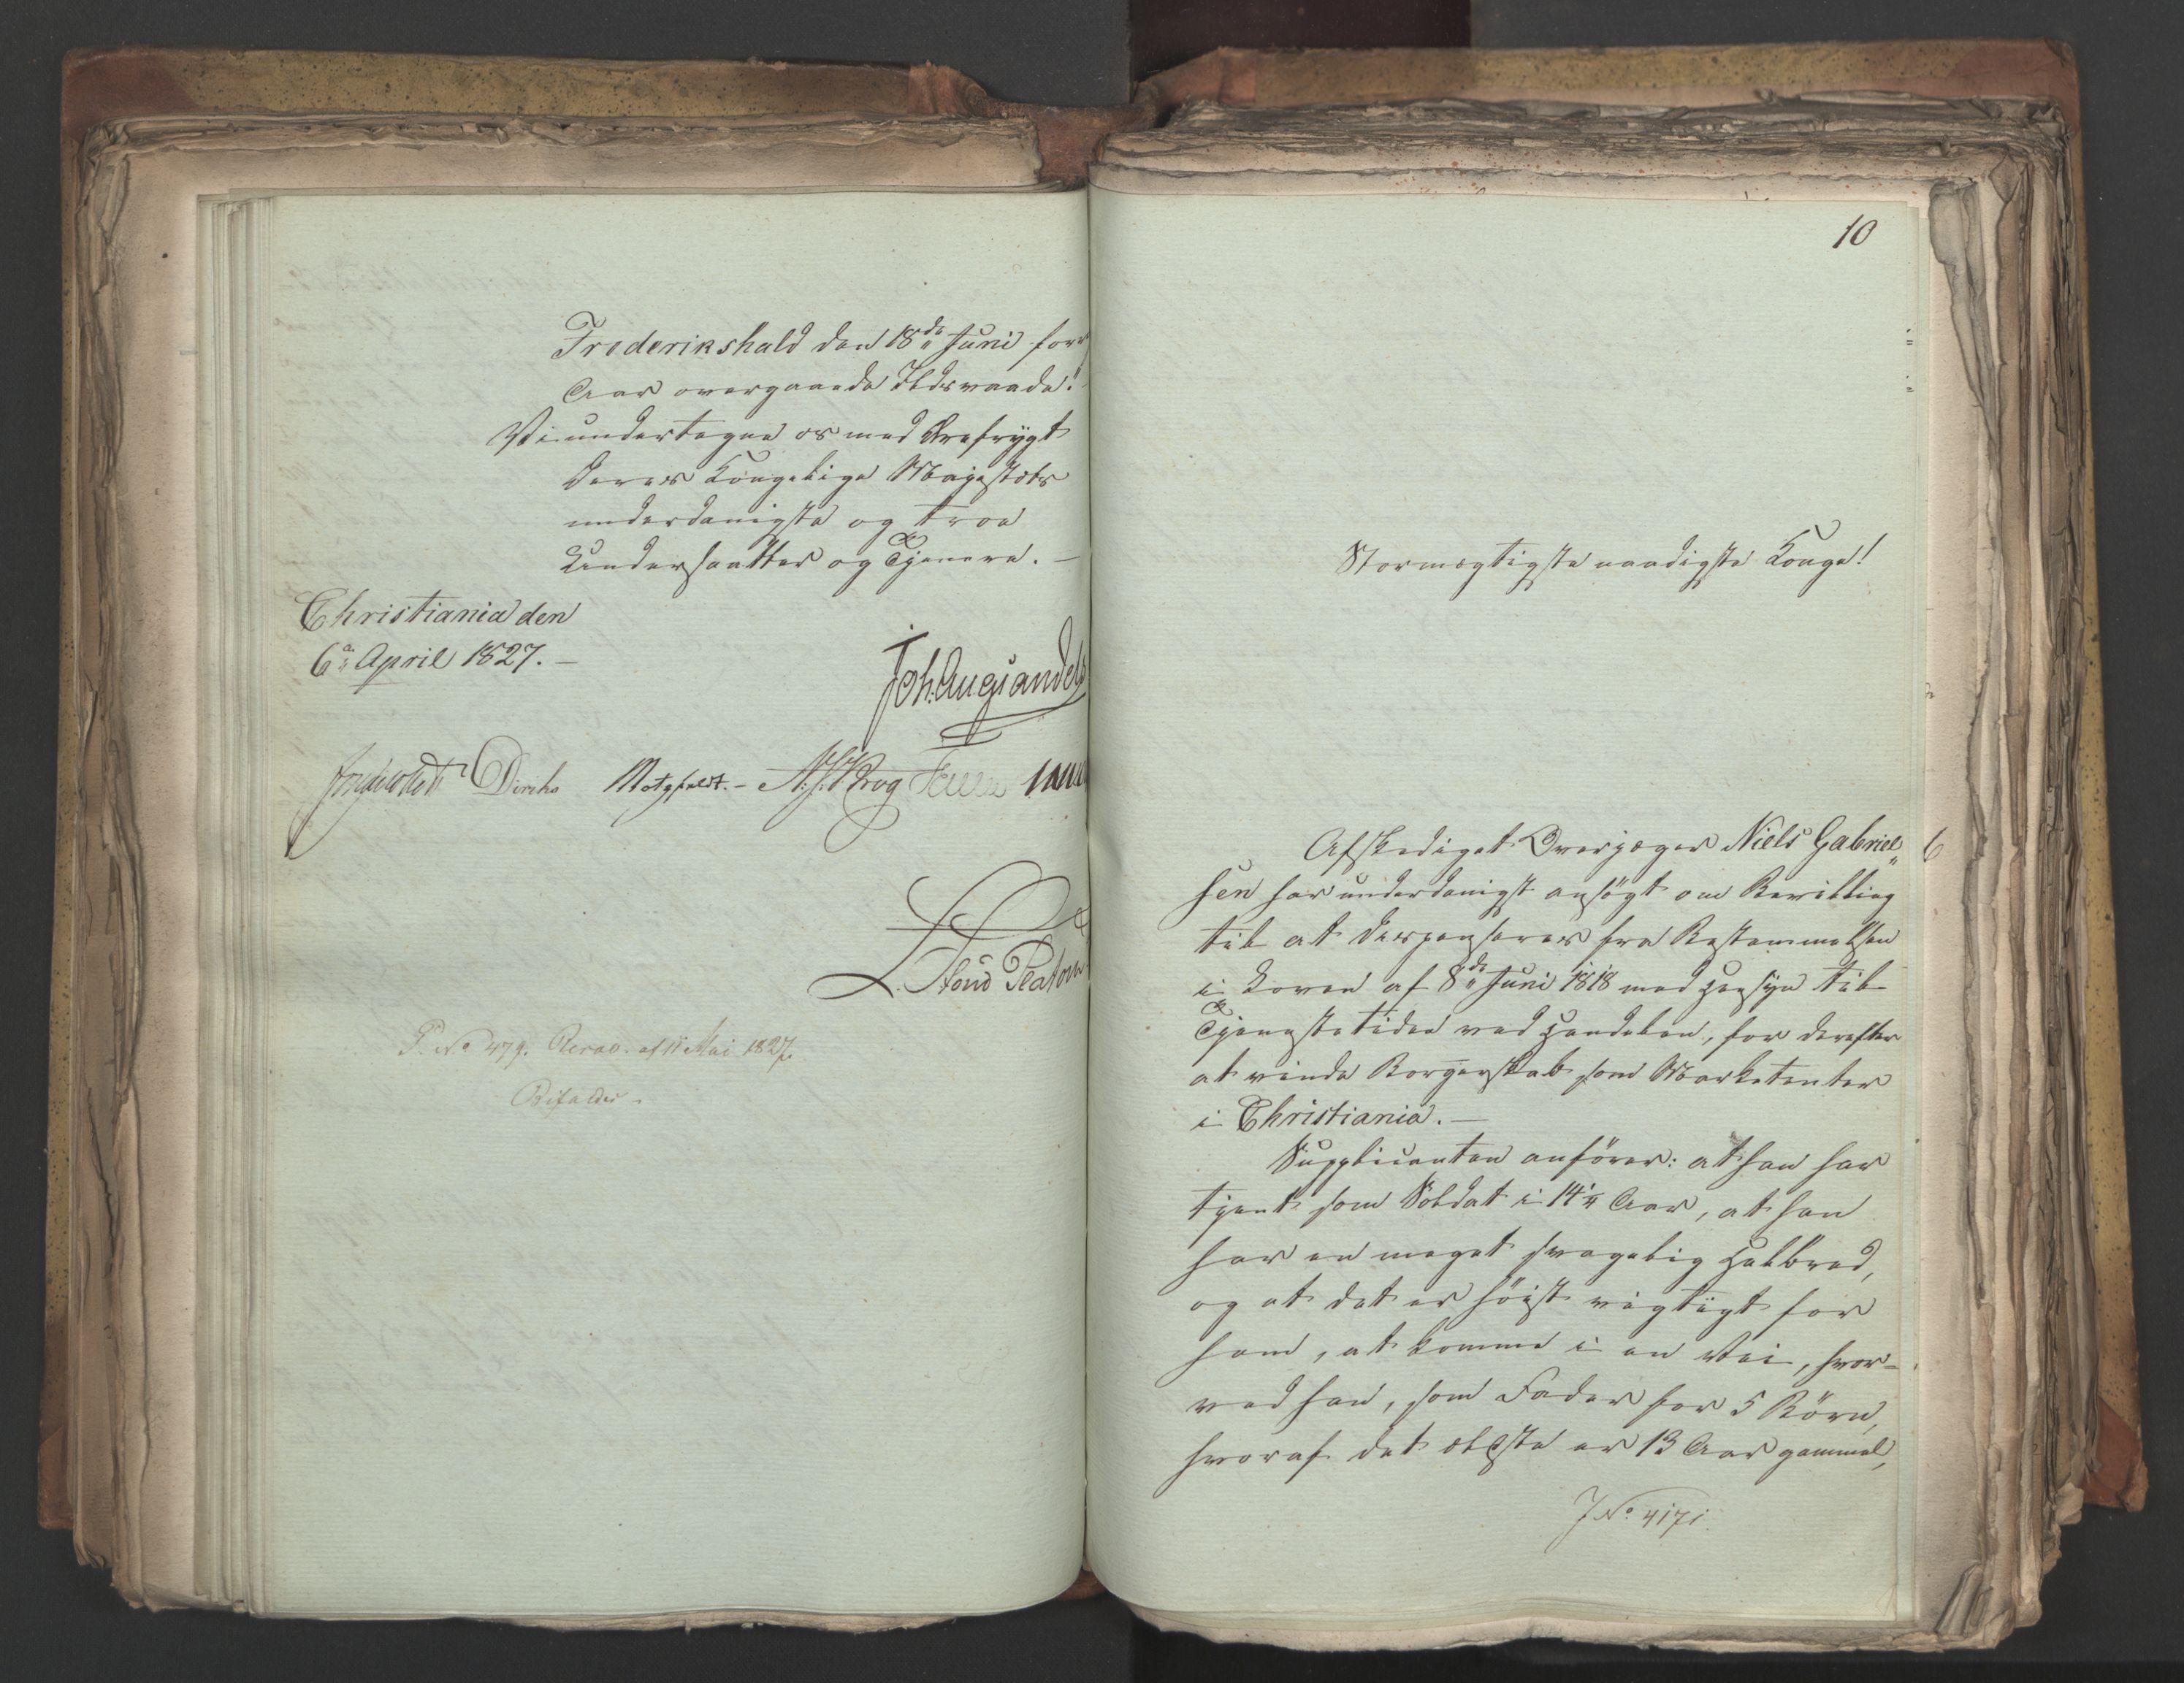 Frederikshald den 18de Juni forr
Aar overgaaede Ildsvaade.
Vi undertegne os med Ærefrygt
Deres Kongelige Majestæts
underdanigste og troe
Undersaatter og Tjenere. —
Christiania den
6te April 1827. —
Joh. Aug. Sandels
Diriks Motzfeldt. – Krog
L. Stoud Platou
P. No 479. Resol. af 11 Mai 1827
Bifaldes –
10
Stormægtigste naadigste Konge!
Afskediget Overjæger Niels Gabriel„ 6
sen har underdanigst ansögt om Bevilling
til at dispenseres fra Bestemmelsen
i Loven af 8de Juni 1818 med Hensyn til
Tjenestetiden ved Handelen, for derefter
at vinde Borgerskab som Marketenter
i Christiania. —
Supplicanten anförer: at han har
tjent som Soldat i 14¼ Aar, at han
har en meget svagelig Helbred,
og at det er höist vigtigt for
ham, at komme i en Vei, hvor=
ved han, som Fader for 5 Börn,
hvoraf det ældste er 13 Aar gammel,
J No 4171.